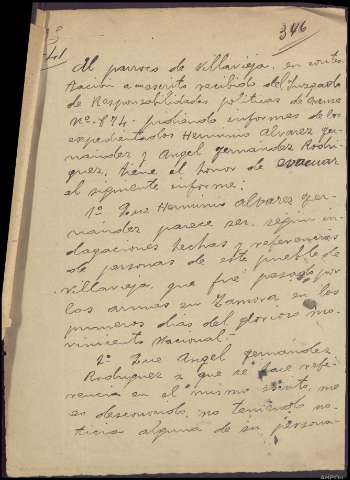 346
El parroco de Villavieja, en contes-
tacion a escrito recibido del Juzgado
de Responsabilidades politicas de Orense
nº 874- pidiendo informes de los
expedientados Herminio Alvarez Fer-
nández y Angel Fernández Rodri-
guez, tiene el honor de evacuar
el siguiente informe:
1º Que Herminio Alvarez Fer-
nández parece ser, según in-
dagaciones hechas y referencias
de personas de este pueblo de
Villavieja, que fué pasado por
las armas en Zamora en los
primeros dias del glorioso mo-
vimiento Nacional.
2º Que Angel Fernández
Rodriguez a que se hace refe-
rencia en el mismo escrito, me
es desconocido, no teniendo no-
ticia alguna de su persona-